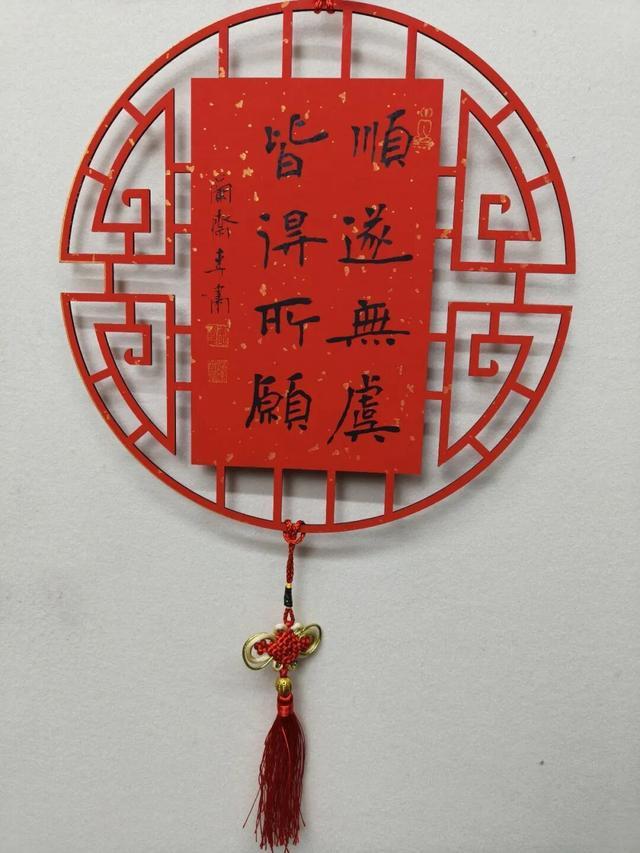 順遂無虞
皆得所願